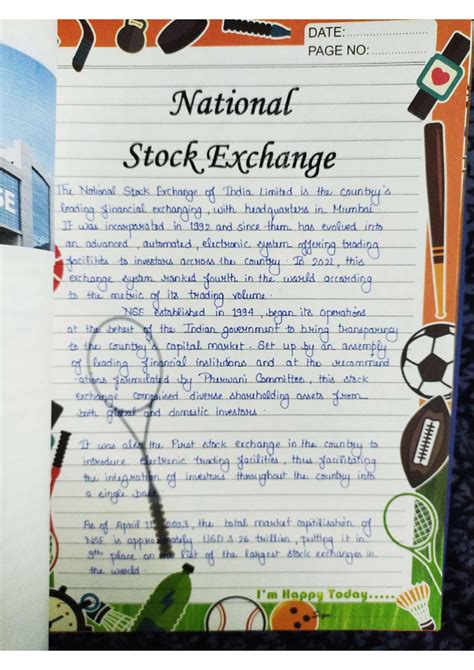 DATE:
PAGE NO:
National
Stock Exchange
The National Stock Exchange of India Limited is the country's
leading financial exchanging, with headquarters in Mumbai
It was incorporated in 1992 and since then has evolved into
an advanced, automated, electronic system offering trading
facilities to investors accross the country. In 2021, this
exchange system ranked fourth in the world according
to the metric of its trading volume.
NSE established in 1994, began its operations
at the behest of the Indian government to bring transparency
to the country's capital market. Set up by an assembly
of leading financial institutions and at the recommend
ations formulated by Pherwani Committee, this stock
exchange comprised diverse shareholding assets from
both global and domestic investors.
It was also the First stock exchange in the country to
introduce electronic trading facilities, thus facilitating
the integration of investors throughout the country into
a single base
As of April 2023, the total market capitilisation of
NSE is approximately USD 3.26 trillion, putting it in
9th place on the list of the largest stock exchanges in
the world.
I'm Happy Today.....
Sign